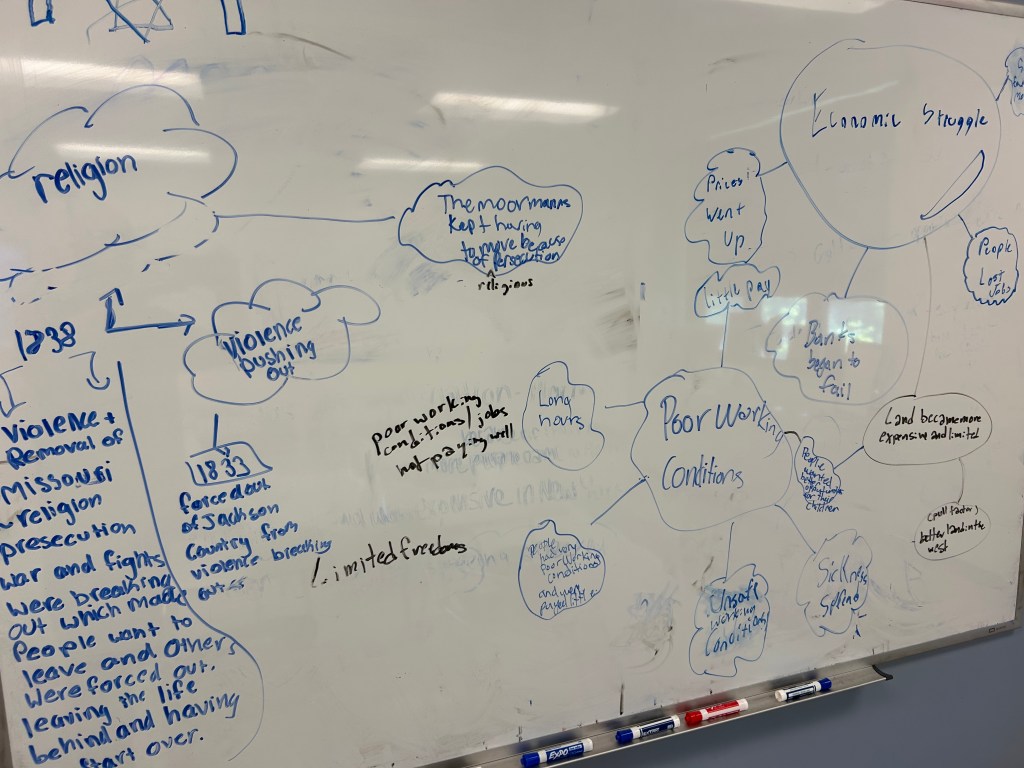 religion
The moormanns
Kept having
to move because
of Persecution
^
religious
1838
Violence
pushing
out
Violence +
Removal of
religion
presecution
war and fights
were breaking
out which made
People want to
leave and Others
were forced out.
leaving the life
behind and having
start over.
1833
forced out
of Jackson
Country from
violence breaking
out
poor working
conditions/jobs
not paying well
Limited freedoms
Economic Struggle
Prices
Went
Up.
People
Lost
Jobs
Banks
began to
fail
Land became more
expensive and limited
(pull factor)
better land in the
west
Poor Working
Conditions
little pay
Long
hours
People
wanted
for their
children
People
had very
Poor Working
Conditions
and were
payed little
Unsafe
working
Conditions
Sickness
Spread
EXPO